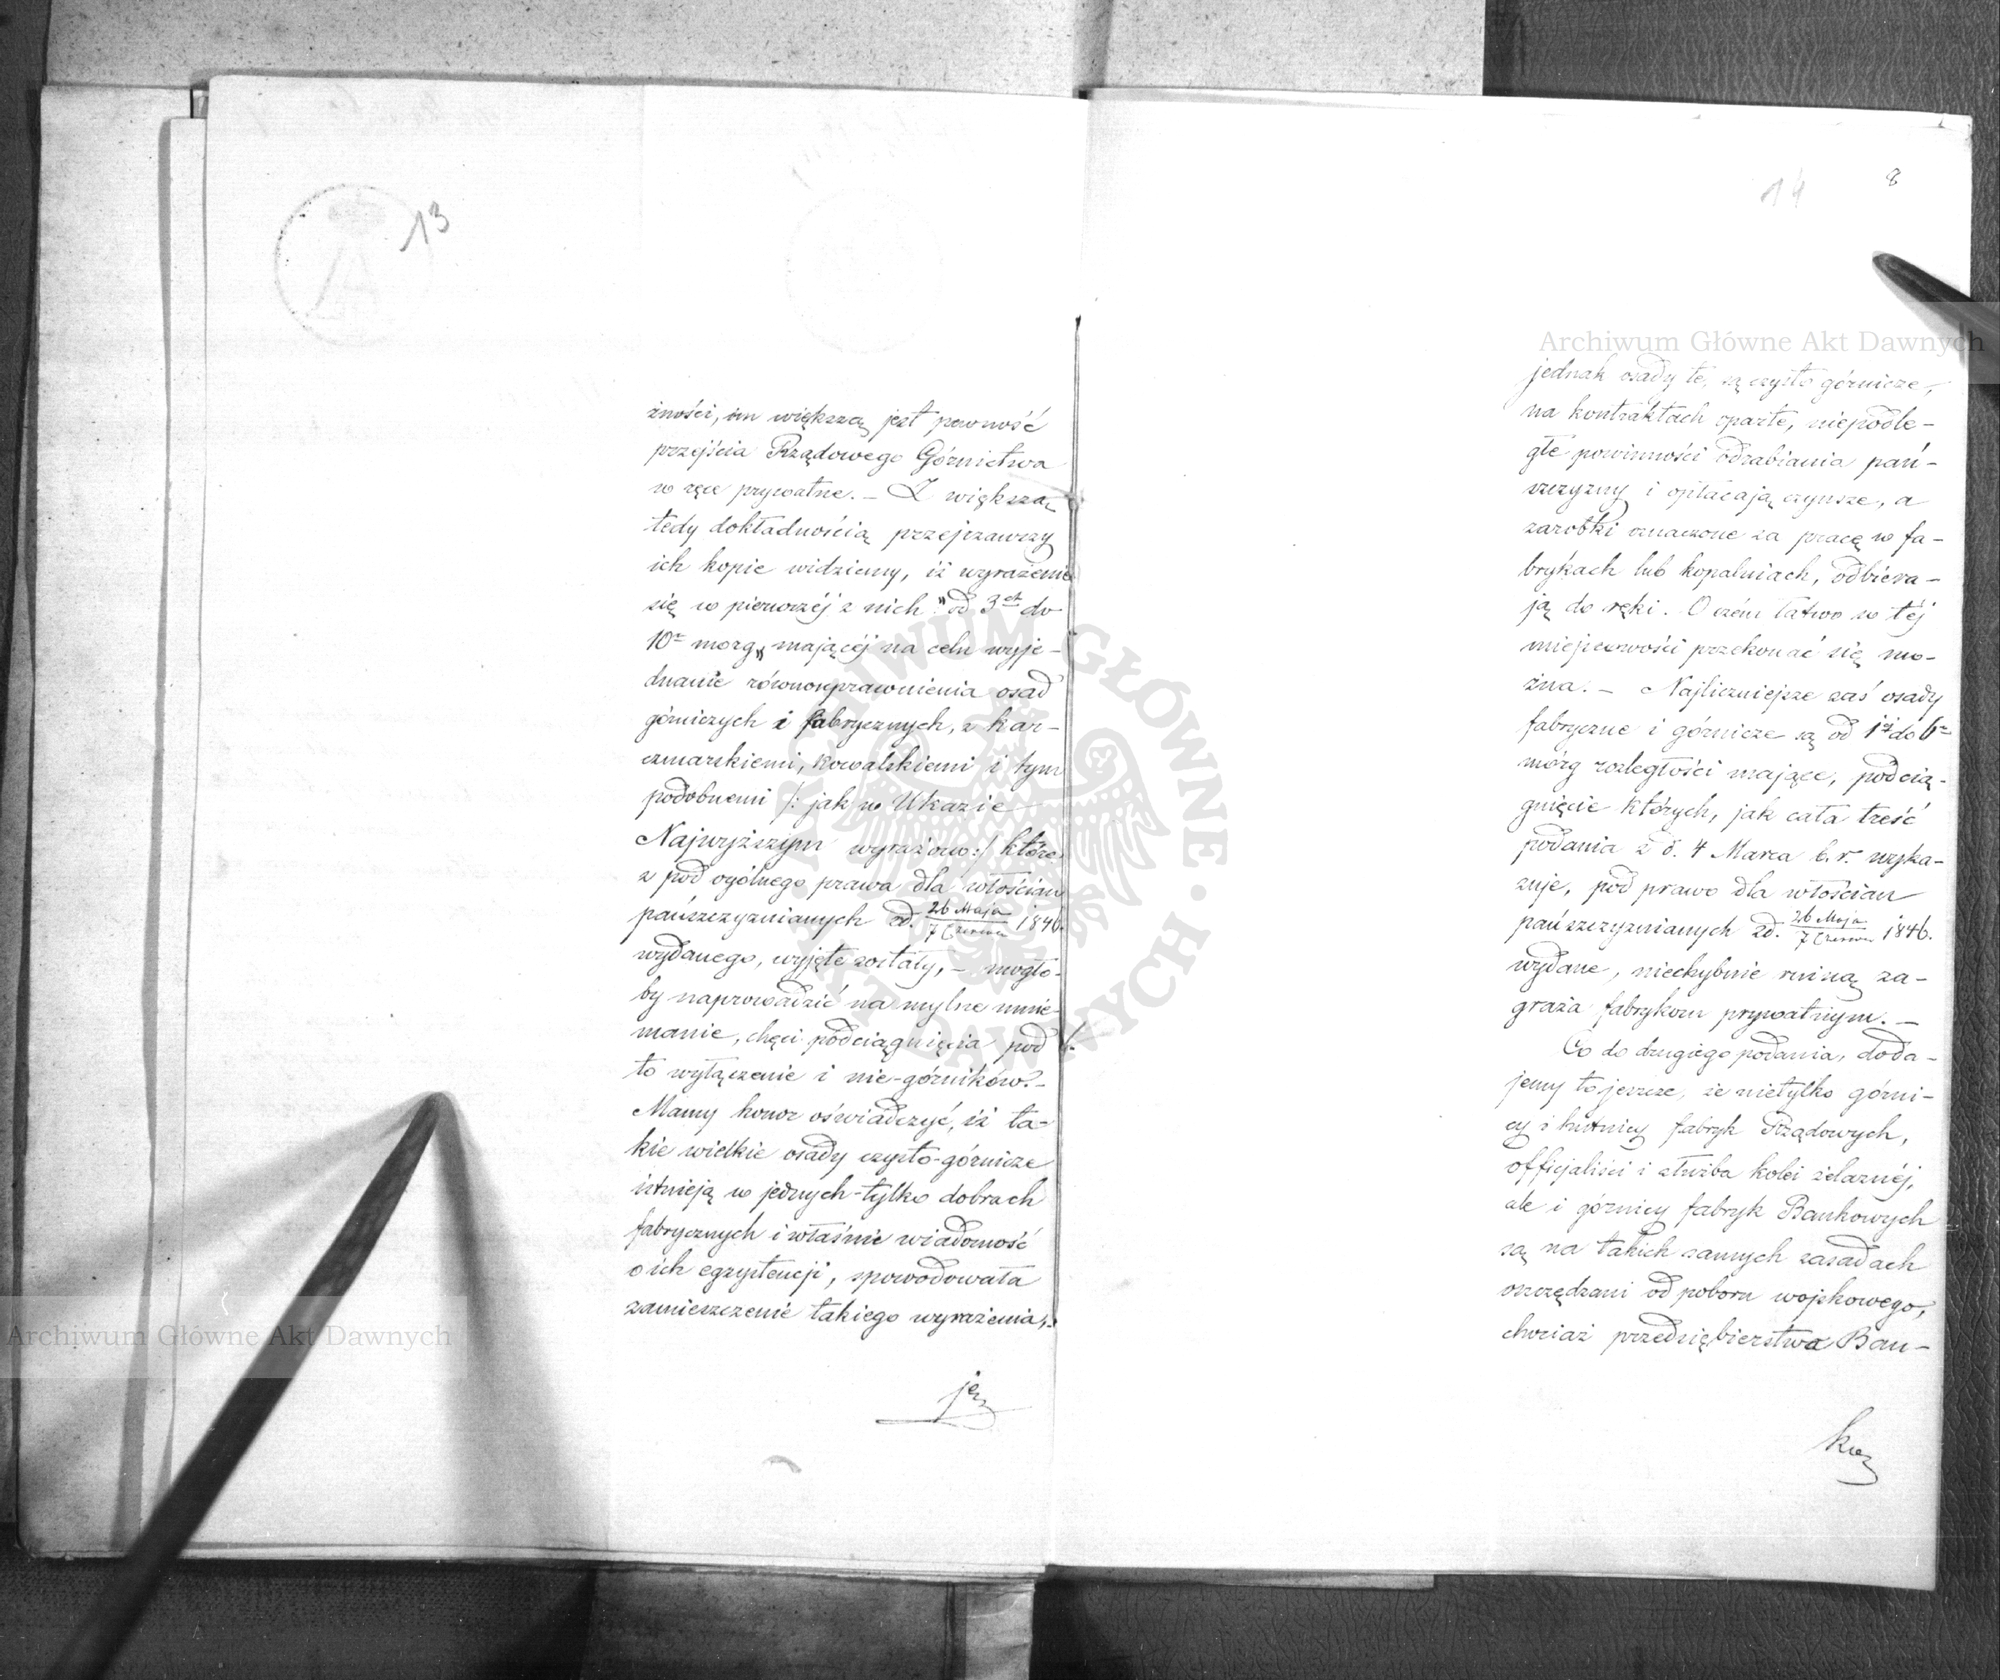 13
żności, im większą jest pewność
przejścia Rządowego Górnictwa
w ręce prywatne. – Z większą
tedy dokładnością przejrzawszy
ich kopie widziemy, iż wyrażenie
się w pierwszéj z nich "od 3ch do
10u morg" mającéj na celu wyje-
dnanie równouprawnienia osad
górniczych i fabrycznych, z kar-
czmarskiemi, kowalskiemi i tym
podobnemi /: jak w Ukazie
Najwyższym wyrażono :/ które
z pod ogólnego prawa dla włościan
pańszczyznianych zd. 26 Maja / 7 Czerwca 1846.
wydanego, wyjęte zostały, – mogło-
by naprowadzić na mylne mnie-
manie, chęci podciągnięcia pod
to wyłączenie i nie-górników. –
Mamy honor oświadczyć, iż ta-
kie wielkie osady czysto-górnicze
istnieją w jednych-tylko dobrach
fabrycznych i właśnie wiadomość
o ich egzystencji, spowodowała
zamieszczenie takiego wyrażenia,
14
8
jednak osady te, są czysto górnicze,
na kontraktach oparte, niepodle-
głe powinności odrabiania pań-
szczyzny i opłacają czynsze, a
zarobki oznaczone za pracę w fa-
brykach lub kopalniach, odbiera-
ją do ręki. O czém łatwo w téj
miejscowości przekonać się mo-
żna. – Najliczniejsze zaś osady
fabryczne i górnicze są od 1éj do 6u
mórg rozległości mające, podcią-
gnięcie których, jak cała treść
podania z d. 4 Marca b.r. wyka-
zuje, pod prawo dla włościan
pańszczyznianych zd. 26 Maja / 7 Czerwca 1846.
wydane, niechybnie ruiną za-
graża fabrykom prywatnym. –
Co do drugiego podania, doda-
jemy to jeszcze, że nietylko górni-
cy i hutnicy fabryk Rządowych,
officjaliści i służba kolei żelaznéj,
ale i górnicy fabryk Bankowych
są na takich samych zasadach
oszczędzani od poboru wojskowego,
chociaż przedsiębierstwa Ban-
Archiwum Główne Akt Dawnych
Archiwum Główne Akt Dawnych
ARCHIWUM GŁÓWNE AKT DAWNYCH